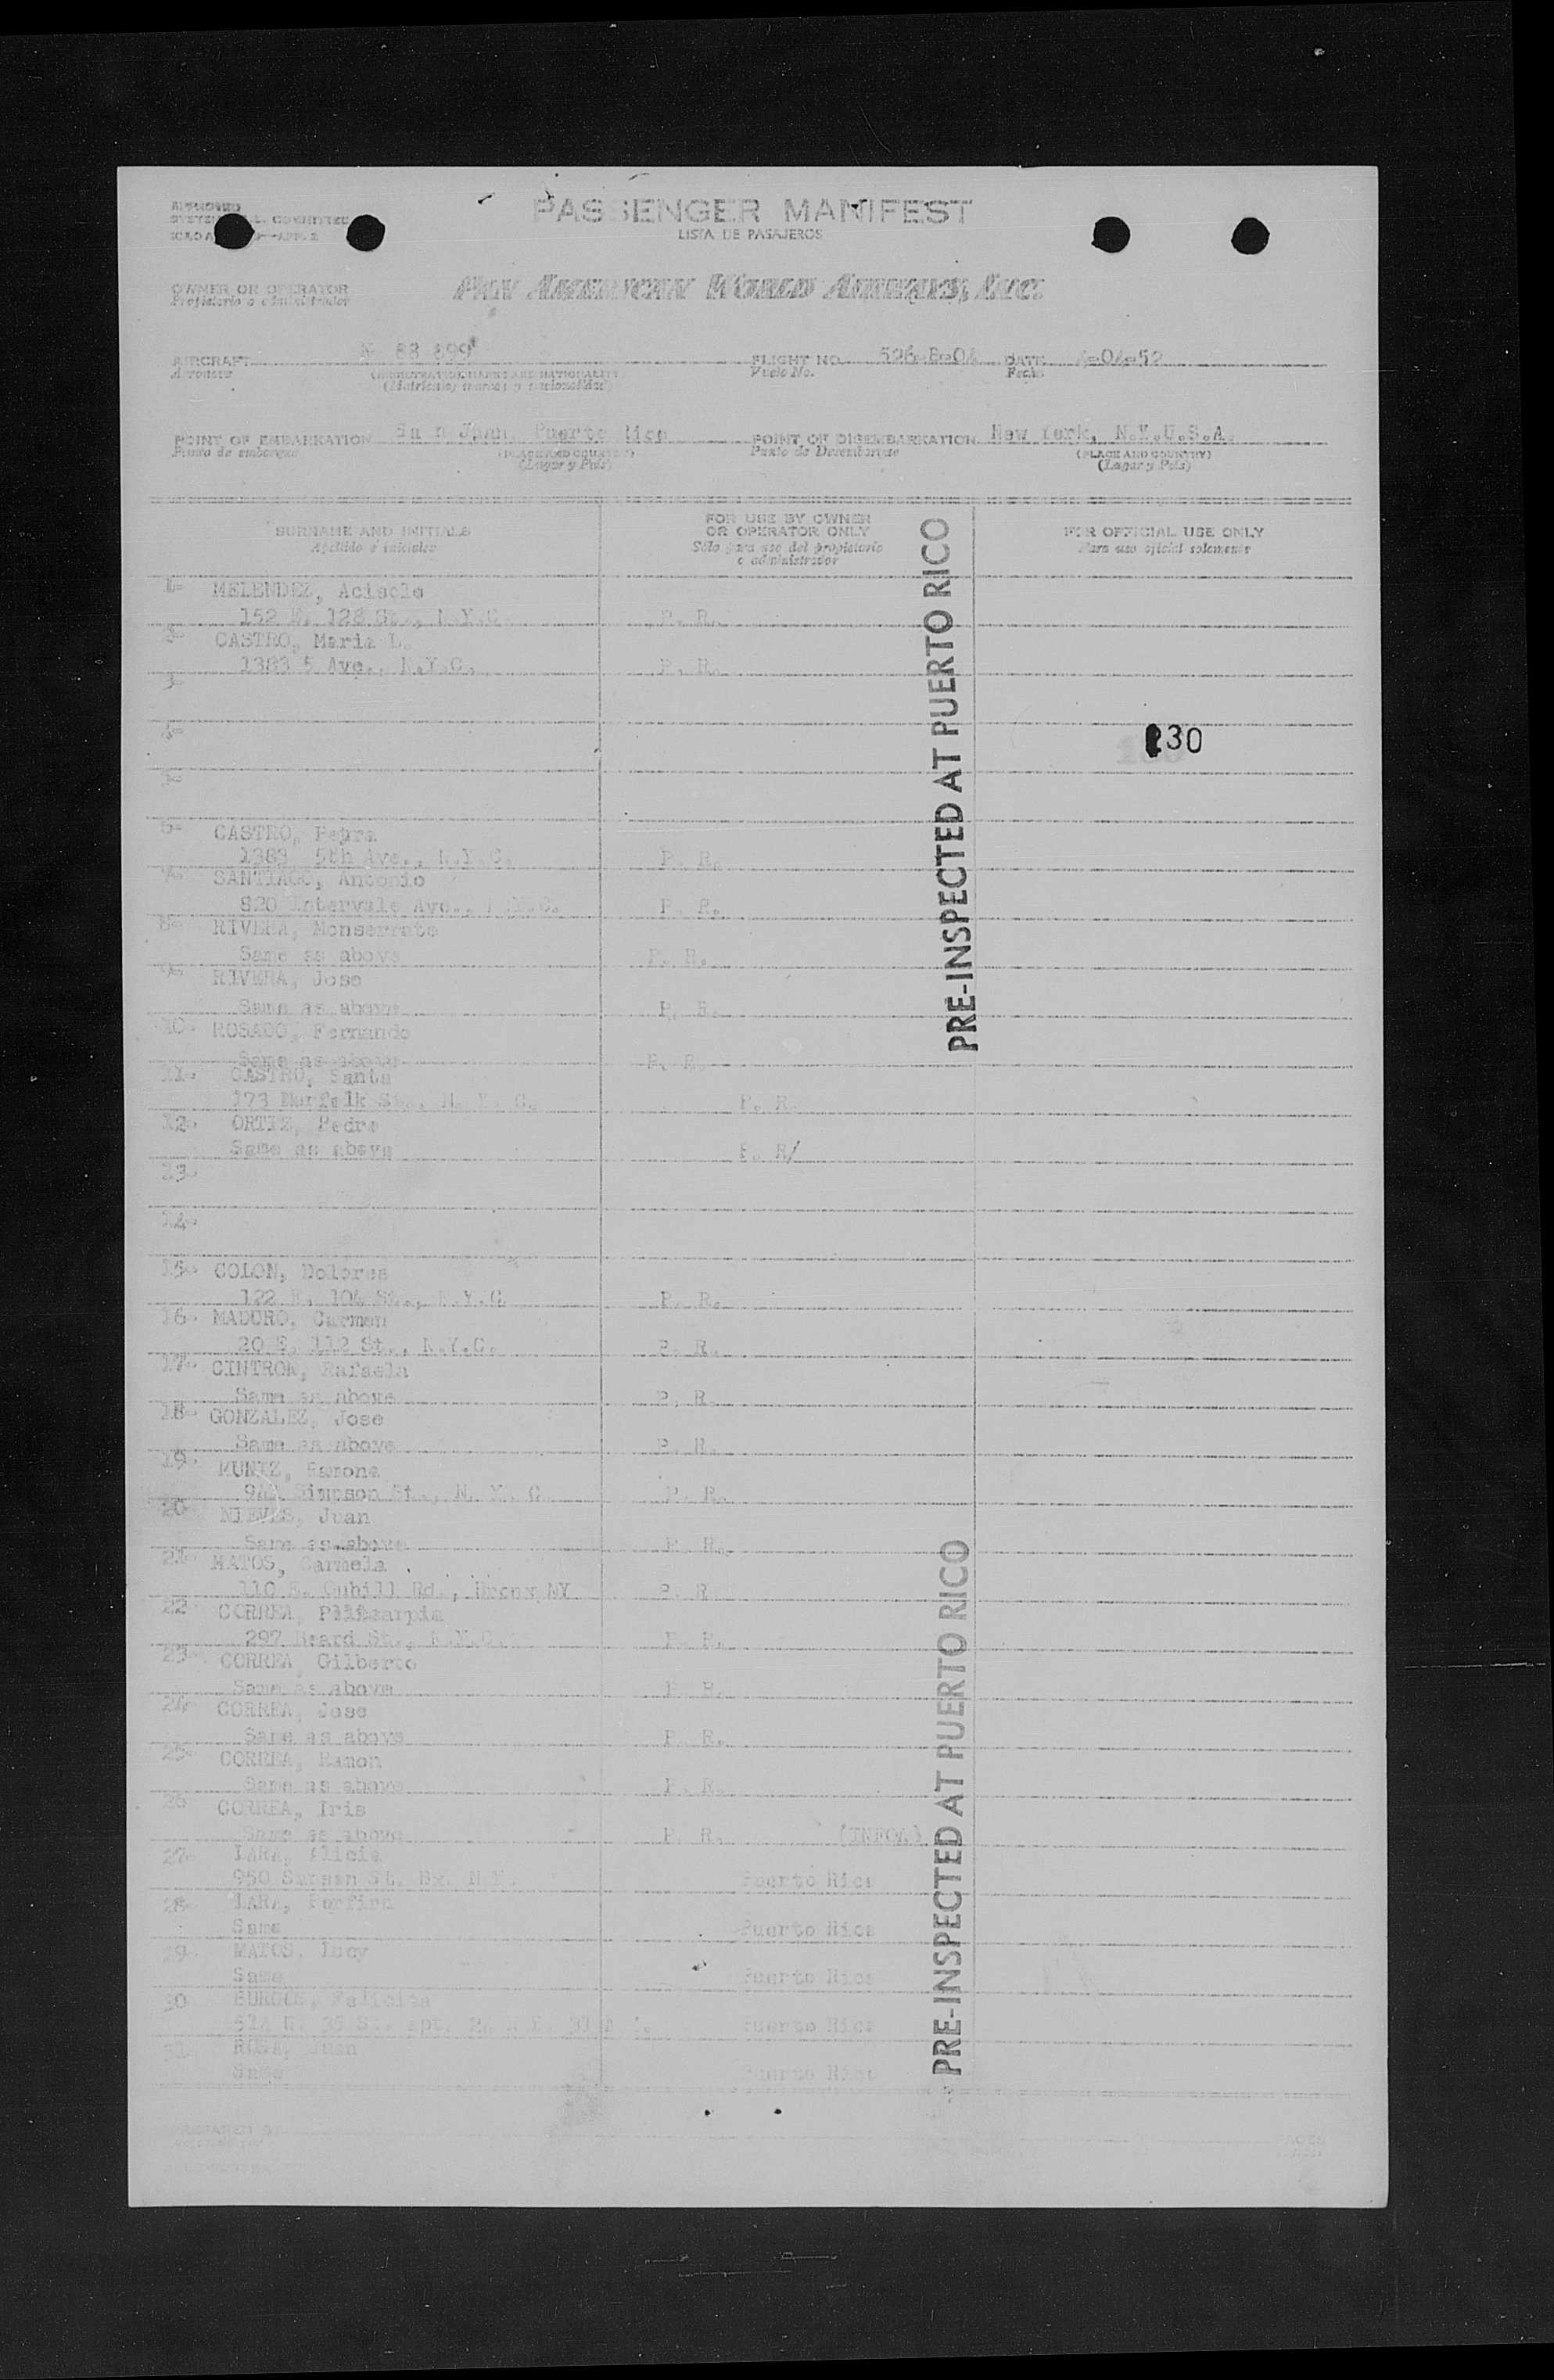 APPROVED
PASSENGER MANIFEST
LISTA DE PASAJEROS
OWNER OR OPERATOR
Propietario o administrador
PAN AMERICAN WORLD AIRWAYS, INC.
AIRCRAFT N- 88 899 FLIGHT NO. 526-B-04 DATE 4-04-52
Aeronave (REGISTRATION MARKS AND NATIONALITY) Vuelo No. Fecha
(Matricula, marcas y nacionalidad)
POINT OF EMBARKATION Sa n Juan, Puerto Rico POINT OF DISEMBARKATION New York, N.Y.U.S.A.
Punto de embarque (PLACE AND COUNTRY) Punto de Desembarque (PLACE AND COUNTRY)
(Lugar y País) (Lugar y País)
SURNAME AND INITIALS FOR USE BY OWNER OR OPERATOR ONLY FOR OFFICIAL USE ONLY
Apellido e iniciales Sólo para uso del propietario o administrador Para uso oficial solamente
1- MELENDEZ, Acisclo
152 E. 128 St., N.Y.C. P. R.
2- CASTRO, Maria L.
1383 5 Ave., N.Y.C. P. R.
3-
4- 130
5-
6- CASTRO, Petra
1383 5th Ave., N.Y.C. P. R.
7- SANTIAGO, Antonio
820 Intervale Ave., N.Y.C. P. R.
8- RIVERA, Monserrate
Same as above P. R.
9- RIVERA, Jose
Same as above P. R.
10- ROSADO, Fernando
Same as above P. R.
11- CASTRO, Santa
173 Norfolk St., N. Y. C. P. R.
12- ORTIZ, Pedro
Same as above P. R/
13-
14-
15- COLON, Dolores
122 E. 104 St., N.Y.C. P. R.
16- MADURO, Carmen
20 E. 112 St., N.Y.C. P. R.
17- CINTRON, Rafaela
Same as above P. R.
18- GONZALEZ, Jose
Same as above P. R.
19- MUNIZ, Ramona
Simpson St., N. Y. C. P. R.
20- NIEVES, Juan
Same as above P. R.
21- MATOS, Carmela
110 E. Rd., Bronx NY P. R.
22- CORREA,
297 St., N.Y.C. P. R.
23- CORREA, Gilberto
Same as above P. R.
24- CORREA, Jose
Same as above P. R.
25- CORREA, Ramon
Same as above P. R.
26- CORREA, Iris
Same as above P. R.
27- LARA, Alicia
950 St. Bx. N.Y. Puerto Rico
28- LARA, Porfirio
Same Puerto Rico
29- MATOS, Lucy
Same Puerto Rico
30 BURGOS,
35 St. apt. Puerto Rico
31- Juan
Same Puerto Rico
PREPARED BY
PRE-INSPECTED AT PUERTO RICO
PRE-INSPECTED AT PUERTO RICO